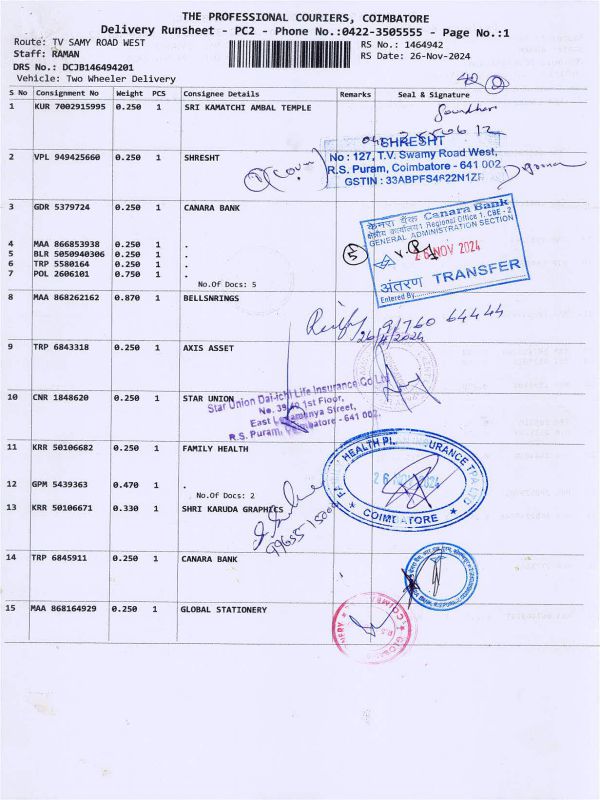 THE PROFESSIONAL COURIERS, COIMBATORE
Delivery Runsheet - PC2 - Phone No.:0422-3505555 - Page No.:1
Route: TV SAMY ROAD WEST
Staff: RAMAN
DRS No.: DCJB146494201
Vehicle: Two Wheeler Delivery
RS No.: 1464942
RS Date: 26-Nov-2024
S No Consignment No Weight PCS Consignee Details Remarks Seal & Signature
1 KUR 7002915995 0.250 1 SRI KAMATCHI AMBAL TEMPLE
2 VPL 949425660 0.250 1 SHRESHT
SHRESHT
No : 127, T.V. Swamy Road West,
R.S. Puram, Coimbatore - 641 002
3 GDR 5379724 0.250 1 CANARA BANK
4 MAA 866853938 0.250 1 .
5 BLR 5050940306 0.250 1 .
6 TRP 5580164 0.250 1 .
7 POL 2606101 0.750 1 .
No.Of Docs: 5
केनरा बैंक Canara Bank
Regional Office 1, CBE - 2
GENERAL ADMINISTRATION SECTION
26 NOV 2024
अंतरण TRANSFER
Entered By
8 MAA 868262162 0.870 1 BELLSNRINGS
26/11/2024
9 TRP 6843318 0.250 1 AXIS ASSET
10 CNR 1848620 0.250 1 STAR UNION
Star Union Dai-ichi Life Insurance Co Ltd
1st Floor,
Street,
R.S. Puram, Coimbatore - 641 002.
11 KRR 50106682 0.250 1 FAMILY HEALTH
12 GPM 5439363 0.470 1 .
No.Of Docs: 2
FAMILY HEALTH PLAN INSURANCE TPA LTD
COIMBATORE
13 KRR 50106671 0.330 1 SHRI KARUDA GRAPHICS
14 TRP 6845911 0.250 1 CANARA BANK
15 MAA 868164929 0.250 1 GLOBAL STATIONERY